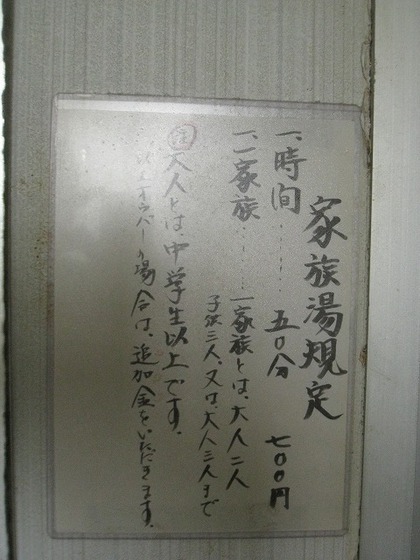 家族湯規定
一、時間……五〇分 七〇〇円
一、一家族……一家族とは、大人二人
子供三人、又は、大人三人まで
注 大人とは、中学生以上です。
以上オーバーの場合は、追加金をいただきます。